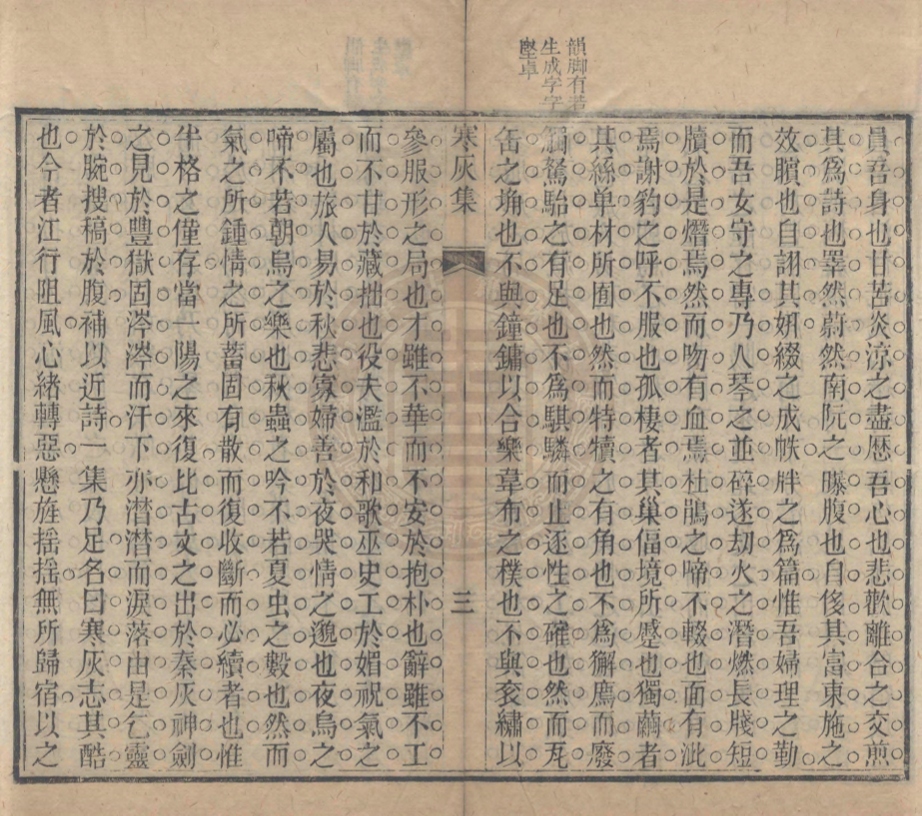 韻脚有若
生成字字
堅卓
員吾身也甘苦炎涼之盡歷吾心也悲歡離合之交煎
其為詩也睪然蔚然南阮之曝腹也自侈其富東施之
效矉也自詡其妍綴之成帙牉之為篇惟吾婦理之勤
而吾女守之專乃人琴之並碎遂劫火之潛燃長牋短
牘於是熸焉然而吻有血焉杜鵑之啼不輟也面有泚
焉謝豹之呼不服也孤棲者其巢偪境所蹙也獨繭者
其絲单材所囿也然而特犢之有角也不為獬廌而廢
觸駑駘之有足也不為騏驎而止逐性之確也然而瓦
缶之埆也不與鐘鏞以合樂韋布之樸也不與衮繡以
寒灰集
三
參服形之局也才雖不華而不安於抱朴也辭雖不工
而不甘於藏拙也役夫濫於和歌巫史工於媚祝氣之
屬也旅人易於秋悲寡婦善於夜哭情之邈也夜烏之
啼不若朝烏之樂也秋蟲之吟不若夏虫之斅也然而
氣之所鍾情之所蓄固有散而復收斷而必續者也惟
半格之僅存當一陽之來復比古文之出於秦灰神劍
之見於豐獄固涔涔而汗下亦潸潸而淚落由是乞靈
於腕搜稿於腹補以近詩一集乃足名曰寒灰志其酷
也今者江行阻風心緒轉惡懸旌搖搖無所歸宿以之